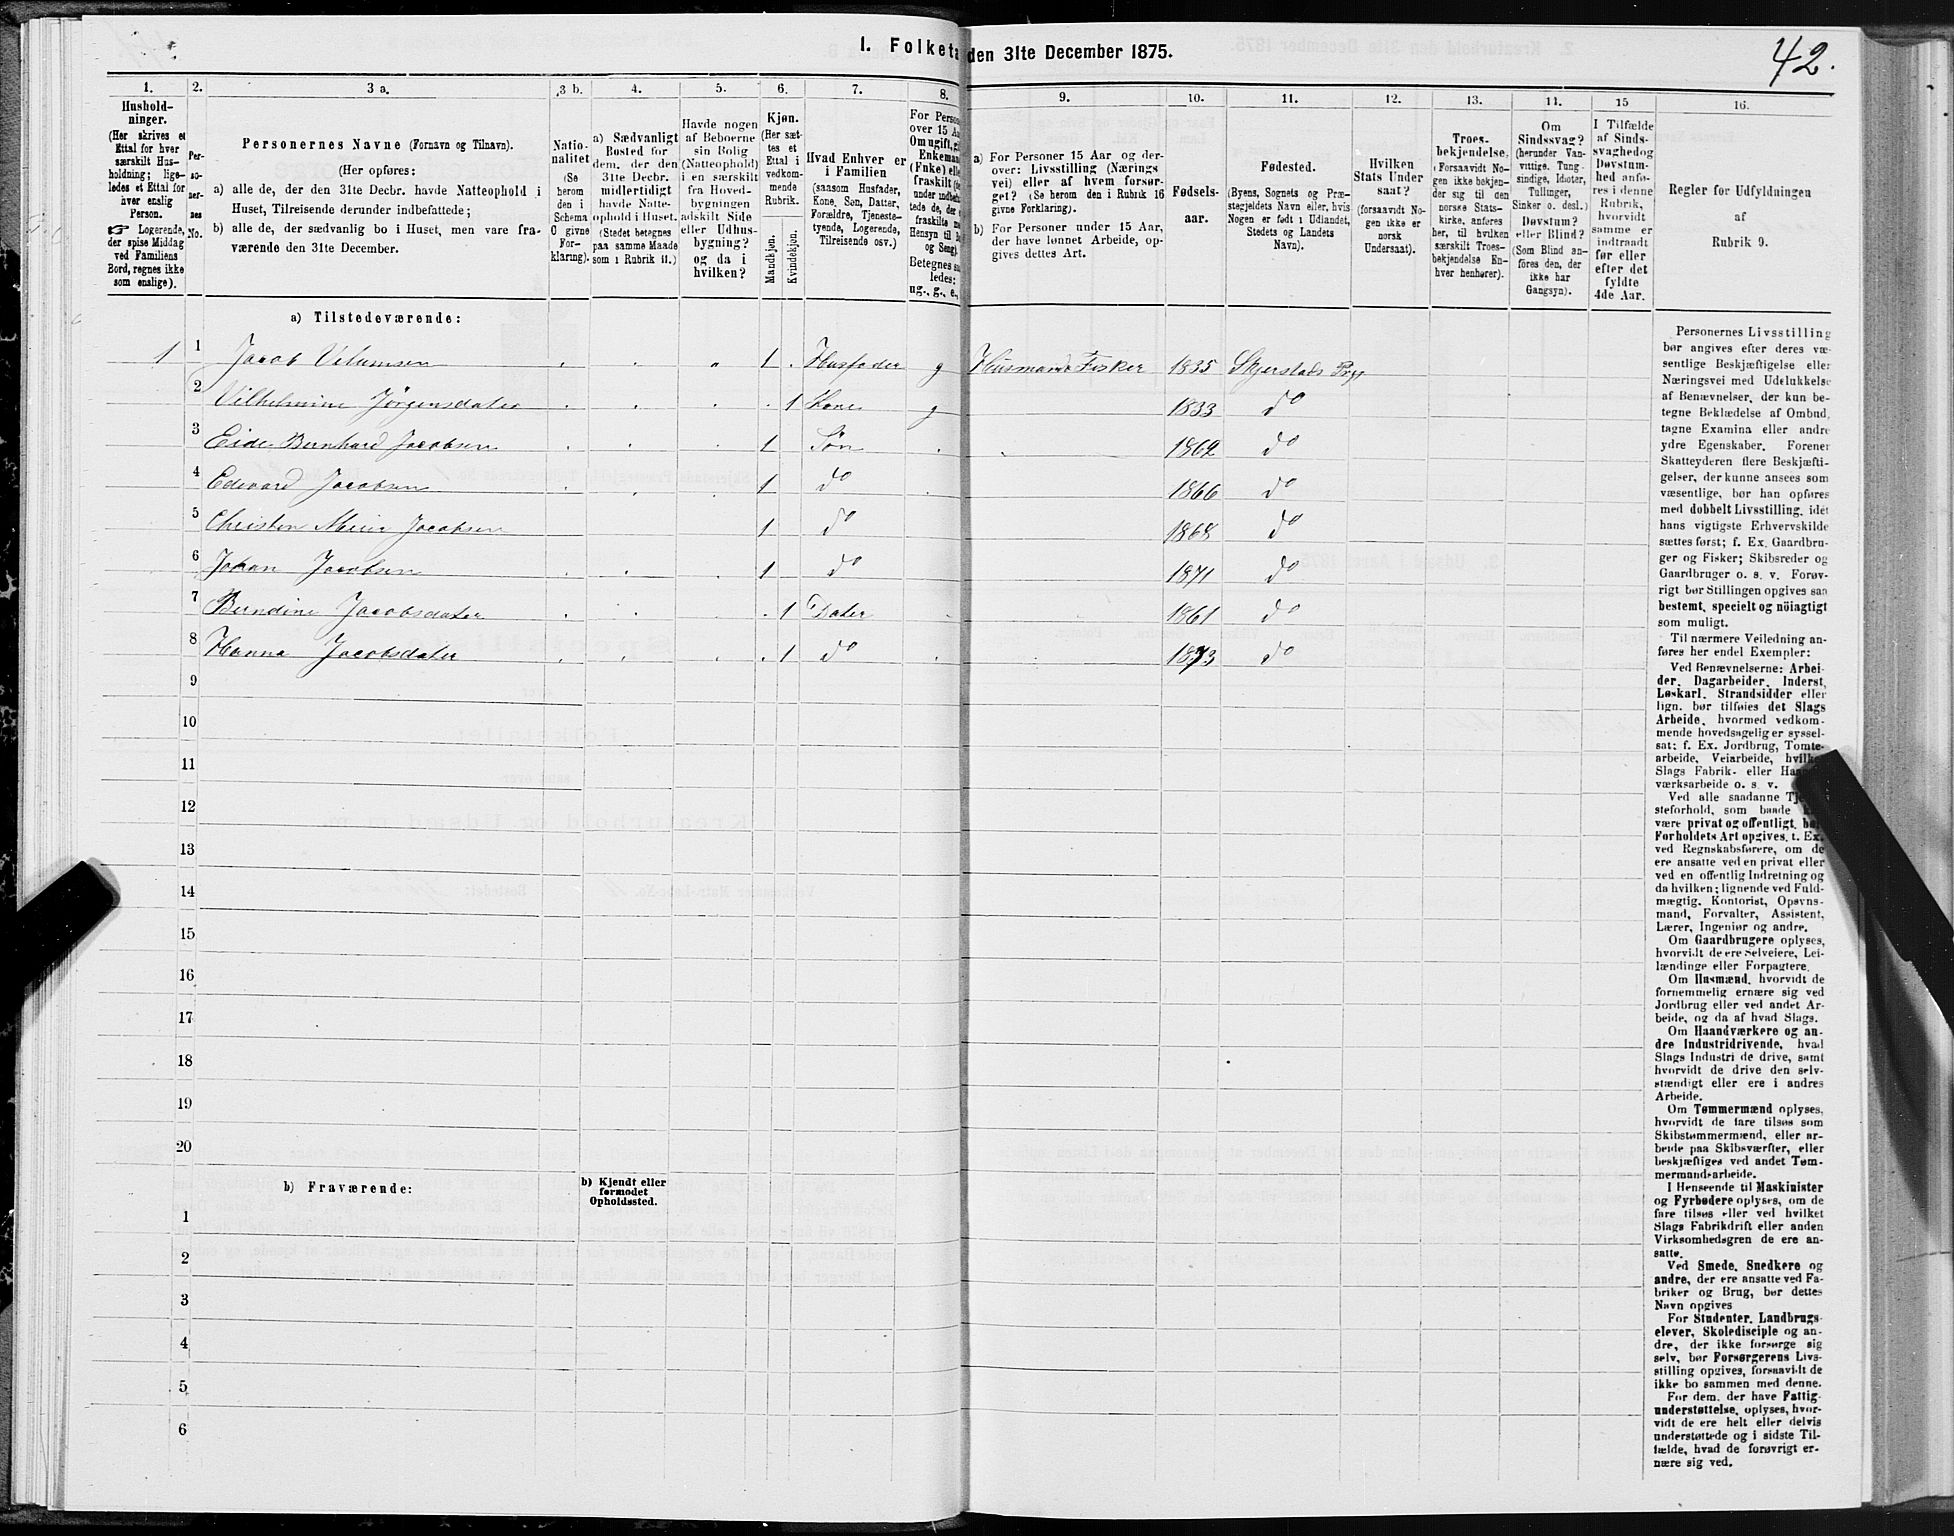 42.
I. Folketa den 31te December 1875.
1.
Hushold-
ninger.
(Her skrives et
Ettal for hver
særskilt Hus-
holdning; lige-
ledes et Ettal for
hver enslig
Person.
☞ Logerende,
der spise Middag
ved Familiens
Bord, regnes ikke
som enslige).
2.
Per-
so-
ner-
nes
No.
3 a.
Personernes Navne (Fornavn og Tilnavn).
(Her opføres:
a) alle de, der den 31te Decbr. havde Natteophold i
Huset, Tilreisende derunder indbefattede;
b) alle de, der sædvanlig bo i Huset, men vare fra-
værende den 31te December.
3 b.
Natio-
nalitet
(Se
herom
den i
Schema
O givne
For-
klaring).
4.
a) Sædvanligt
Bosted for
dem, der den
31te Decbr.
midlertidigt
havde Natte-
ophold i Huset.
(Stedet betegnes
paa samme Maade
som i Rubrik 11.)
5.
Havde nogen
af Beboerne
sin Bolig
(Natteophold)
i en særskilt
fra Hoved-
bygningen
adskilt Side
eller Udhus-
bygning?
og da i
hvilken?
6.
Kjøn.
(Her sæt-
tes et
Ettal i
vedkom-
mende
Rubrik.
Mandkjøn.
Kvindekjøn.
7.
Hvad Enhver er
i Familien
(saasom Husfader,
Kone, Søn, Datter,
Forældre, Tjeneste-
tyende, Logerende,
Tilreisende osv.)
8.
For Perso
over 15 Aa
Om ugift, gi
Enkeman
(Enke) ell
fraskilt (de
under indbefa
tede de, der e
fraskilte me
Hensyn til Bo
og Seng).
Betegnes sa
ledes:
ug., g., e.,
9.
a) For Personer 15 Aar og der-
over: Livsstilling (Nærings
vei) eller af hvem forsør-
get? (Se herom den i Rubrik 16
givne Forklaring).
b) For Personer under 15 Aar,
der have lønnet Arbeide, op-
gives dettes Art.
10.
Fødsels-
aar.
11.
Fødested.
(Byens, Sognets og Præ-
stegjeldets Navn eller, hvis
Nogen er født i Udlandet,
Stedets og Landets
Navn).
12.
Hvilken
Stats Under
saat?
(forsaavidt No-
gen ikke er
norsk
Undersaat).
13.
Troes-
bekjendelse.
(Forsaavidt No-
gen ikke bekjen-
der sig til den
norske Stats-
kirke, anføres
her, til hvilken
særskilt Troes-
bekjendelse En-
hver henhører).
14.
Om
Sindssvag?
(herunder Van-
vittige, Tung-
sindige, Idioter,
Tullinger,
Sinker o. desl.)
Døvstum?
eller Blind?
(Som Blind an-
føres den, der
ikke har
Gangsyn).
15
I Tilfælde
af Sinds-
svaghed og
Døvstum-
hed anfø-
res i denne
Rubrik,
hvorvidt
samme er
indtraadt
før eller
efter det
fyldte
4de Aar.
16.
Regler for Udfyldningen
af
Rubrik 9.
a) Tilstedeværende:
1 1 Jacob Vilumsen 1 Husfader g Husmand Fisker 1835 Skjerstads Prgj
2 Vilhelmine Jørgensdater 1 Kone g 1833 do
3 Eide Bernhard Jacobsen 1 Søn 1862 do
4 Edevard Jacobsen 1 do 1866 do
5 Christen Meier Jacobsen 1 do 1868 do
6 Johan Jacobsen 1 do 1871 do
7 Berndine Jacobsdater 1 Dater 1861 do
8 Hanna Jacobsdater 1 do 1873 do
9
10
11
12
13
14
15
16
17
18
19
20
b) Fraværende:
b) Kjendt eller
formodet
Opholdssted.
1
2
3
4
5
6
Personernes Livsstilling
bør angives efter deres væ-
sentlige Beskjæftigelse eller
Næringsvei med Udelukkelse
af Benævnelser, der kun be-
tegne Beklædelse af Ombud,
tagne Examina eller andre
ydre Egenskaber. Forener
Skatteyderen flere Beskjæfti-
gelser, der kunne ansees som
væsentlige, bør han opføres
med dobbelt Livsstilling, idet
hans vigtigste Erhvervskilde
sættes først; f. Ex. Gaardbru-
ger og Fisker; Skibsreder og
Gaardbruger o. s. v. Forøv-
rigt bør Stillingen opgives saa
bestemt, specielt og nöiagtigt
som muligt.
Til nærmere Veiledning an-
føres her endel Exempler:
Ved Benævnelserne: Arbei-
der, Dagarbeider, Inderst,
Løskarl, Strandsidder eller
lign. bør tilføies det Slags
Arbeide, hvormed vedkom-
mende hovedsagelig er syssel-
sat; f. Ex. Jordbrug, Tomte-
arbeide, Veiarbeide, hvilke
Slags Fabrik- eller Haand-
værksarbeide o. s. v.
Ved alle saadanne Tje
steforhold, som baade
være privat og offentligt, bør
Forholdets Art opgives, t. Ex.
ved Regnskabsførere, om de
ere ansatte ved en privat eller
ved en offentlig Indretning og
da hvilken; lignende ved Fuld-
mægtig, Kontorist, Opsyns-
mand, Forvalter, Assistent,
Lærer, Ingeniør og andre.
Om Gaardbrugere oplyses,
hvorvidt de ere Selveiere, Lei-
lændinge eller Forpagtere.
Om Husmænd, hvorvidt de
fornemmelig ernære sig ved
Jordbrug eller ved andet Ar-
beide, og da af hvad Slags.
Om Haandværkere og an-
dre Industridrivende, hvad
Slags Industri de drive, samt
hvorvidt de drive den selv-
stændigt eller ere i andres
Arbeide.
Om Tømmermænd oplyses,
hvorvidt de fare tilsøs som
Skibstømmermænd, eller ar-
beide paa Skibsværfter, eller
beskjæftiges ved andet Tøm-
mermandsarbeide.
I Henseende til Maskinister
og Fyrbødere oplyses, om de
fare tilsøs eller ved hvilket
Slags Fabrikdrift eller anden
Virksomhedsgren de ere an-
satte.
Ved Smede, Snedkere og
andre, der ere ansatte ved Fa-
briker og Brug, bør dettes
Navn opgives
For Studenter, Landbrugs-
elever, Skoledisciple og an-
dre, der ikke forsørge sig
selv, bør Forsørgerens Livs-
stilling opgives, forsaavidt de
ikke bo sammen med denne.
For dem, der have Fattig-
understøttelse, oplyses, hvor-
vidt de ere helt eller delvis
understøttede og i sidste Til-
fælde, hvad de forøvrigt er-
nære sig ved.